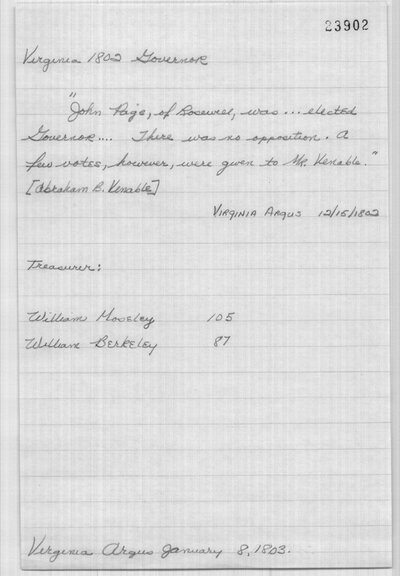 23902
Virginia 1802 Governor
"John Page, of Rosewell, was ... elected
Governor.... There was no opposition. A
few votes, however, were given to Mr. Venable."
[Abraham B. Venable]
Virginia Argus 12/15/1802
Treasurer:
William Moseley 105
William Berkeley 87
Virginia Argus January 8, 1803.